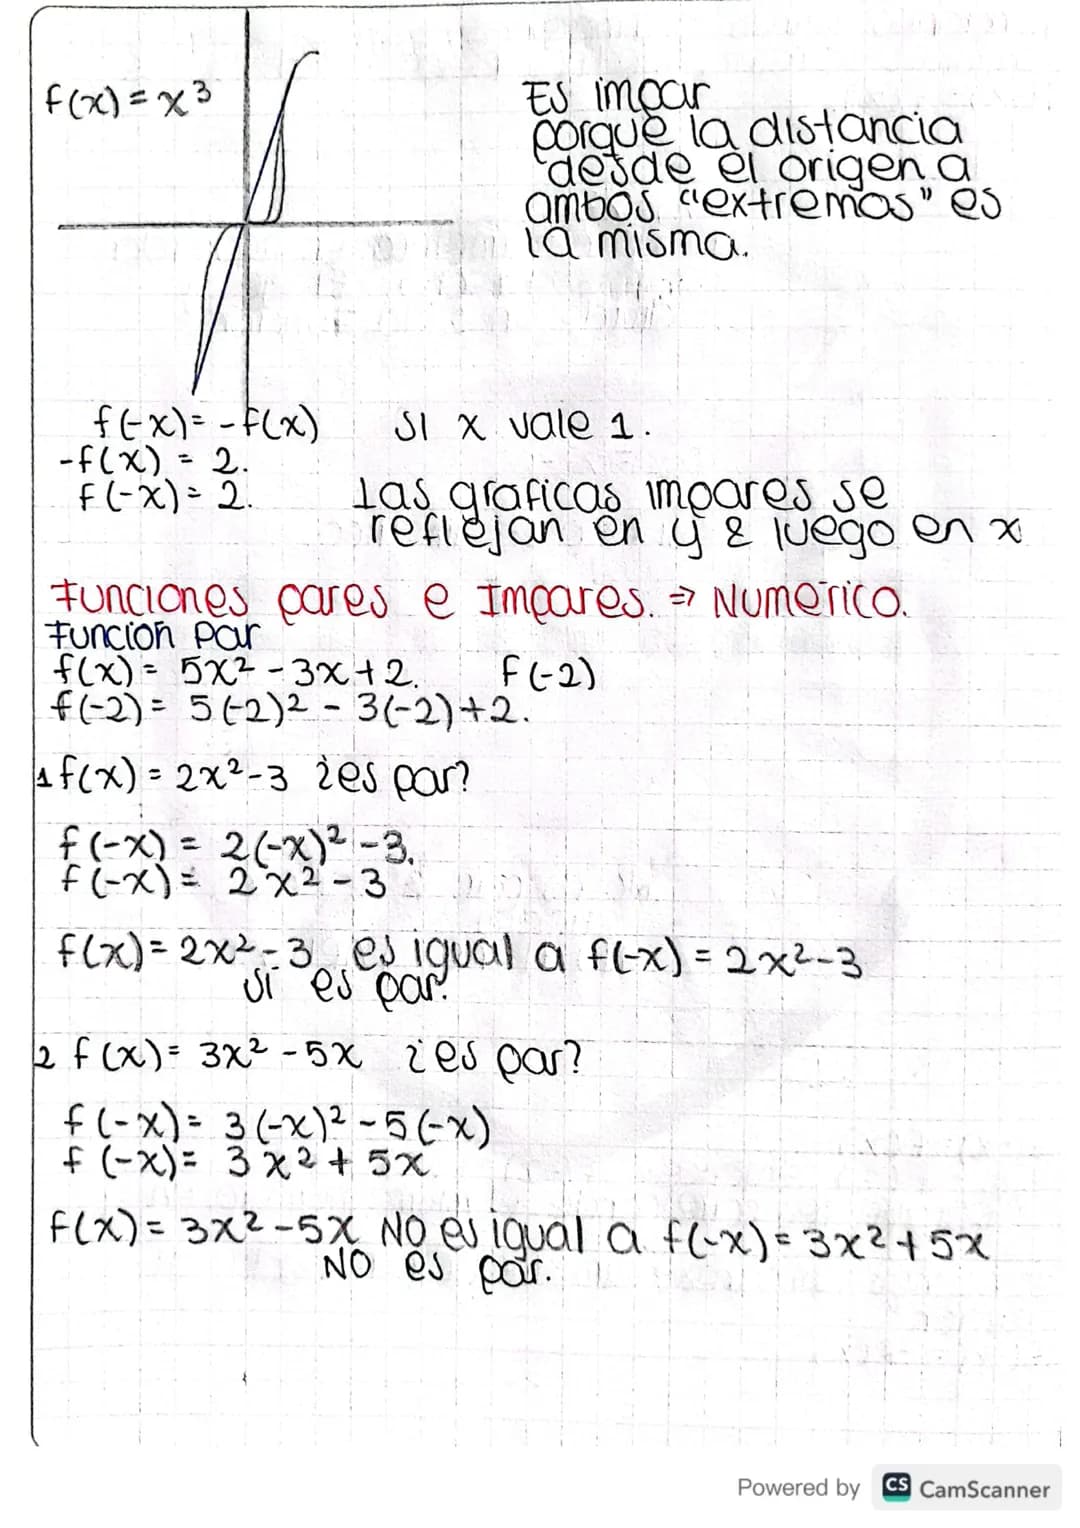 f(x) = x³
Es impar
porque la distancia
desde el origen a
ambos "extremos" es
la misma.
f(-x) = -f(x) Si x vale 1.
-f(x) = 2.
f(-x) = 2. Las graficas impares se
reflejan en y & luego en x
Funciones pares e Impares. => Numerico.
Función Par
f(x) = 5x² - 3x + 2. F(-2)
f(-2) = 5(-2)² - 3(-2) + 2.
1 f(x) = 2x² - 3 ¿es par?
f(-x) = 2(-x)² - 3.
f(-x) = 2x² - 3
f(x) = 2x² - 3 es igual a f(-x) = 2x² - 3
Si es par.
2 f(x) = 3x² - 5x ¿es par?
f(-x) = 3(-x)² - 5(-x)
f(-x) = 3x² + 5x
f(x) = 3x² - 5x NO es igual a f(-x) = 3x² + 5x
NO es par.
Powered by CS CamScanner